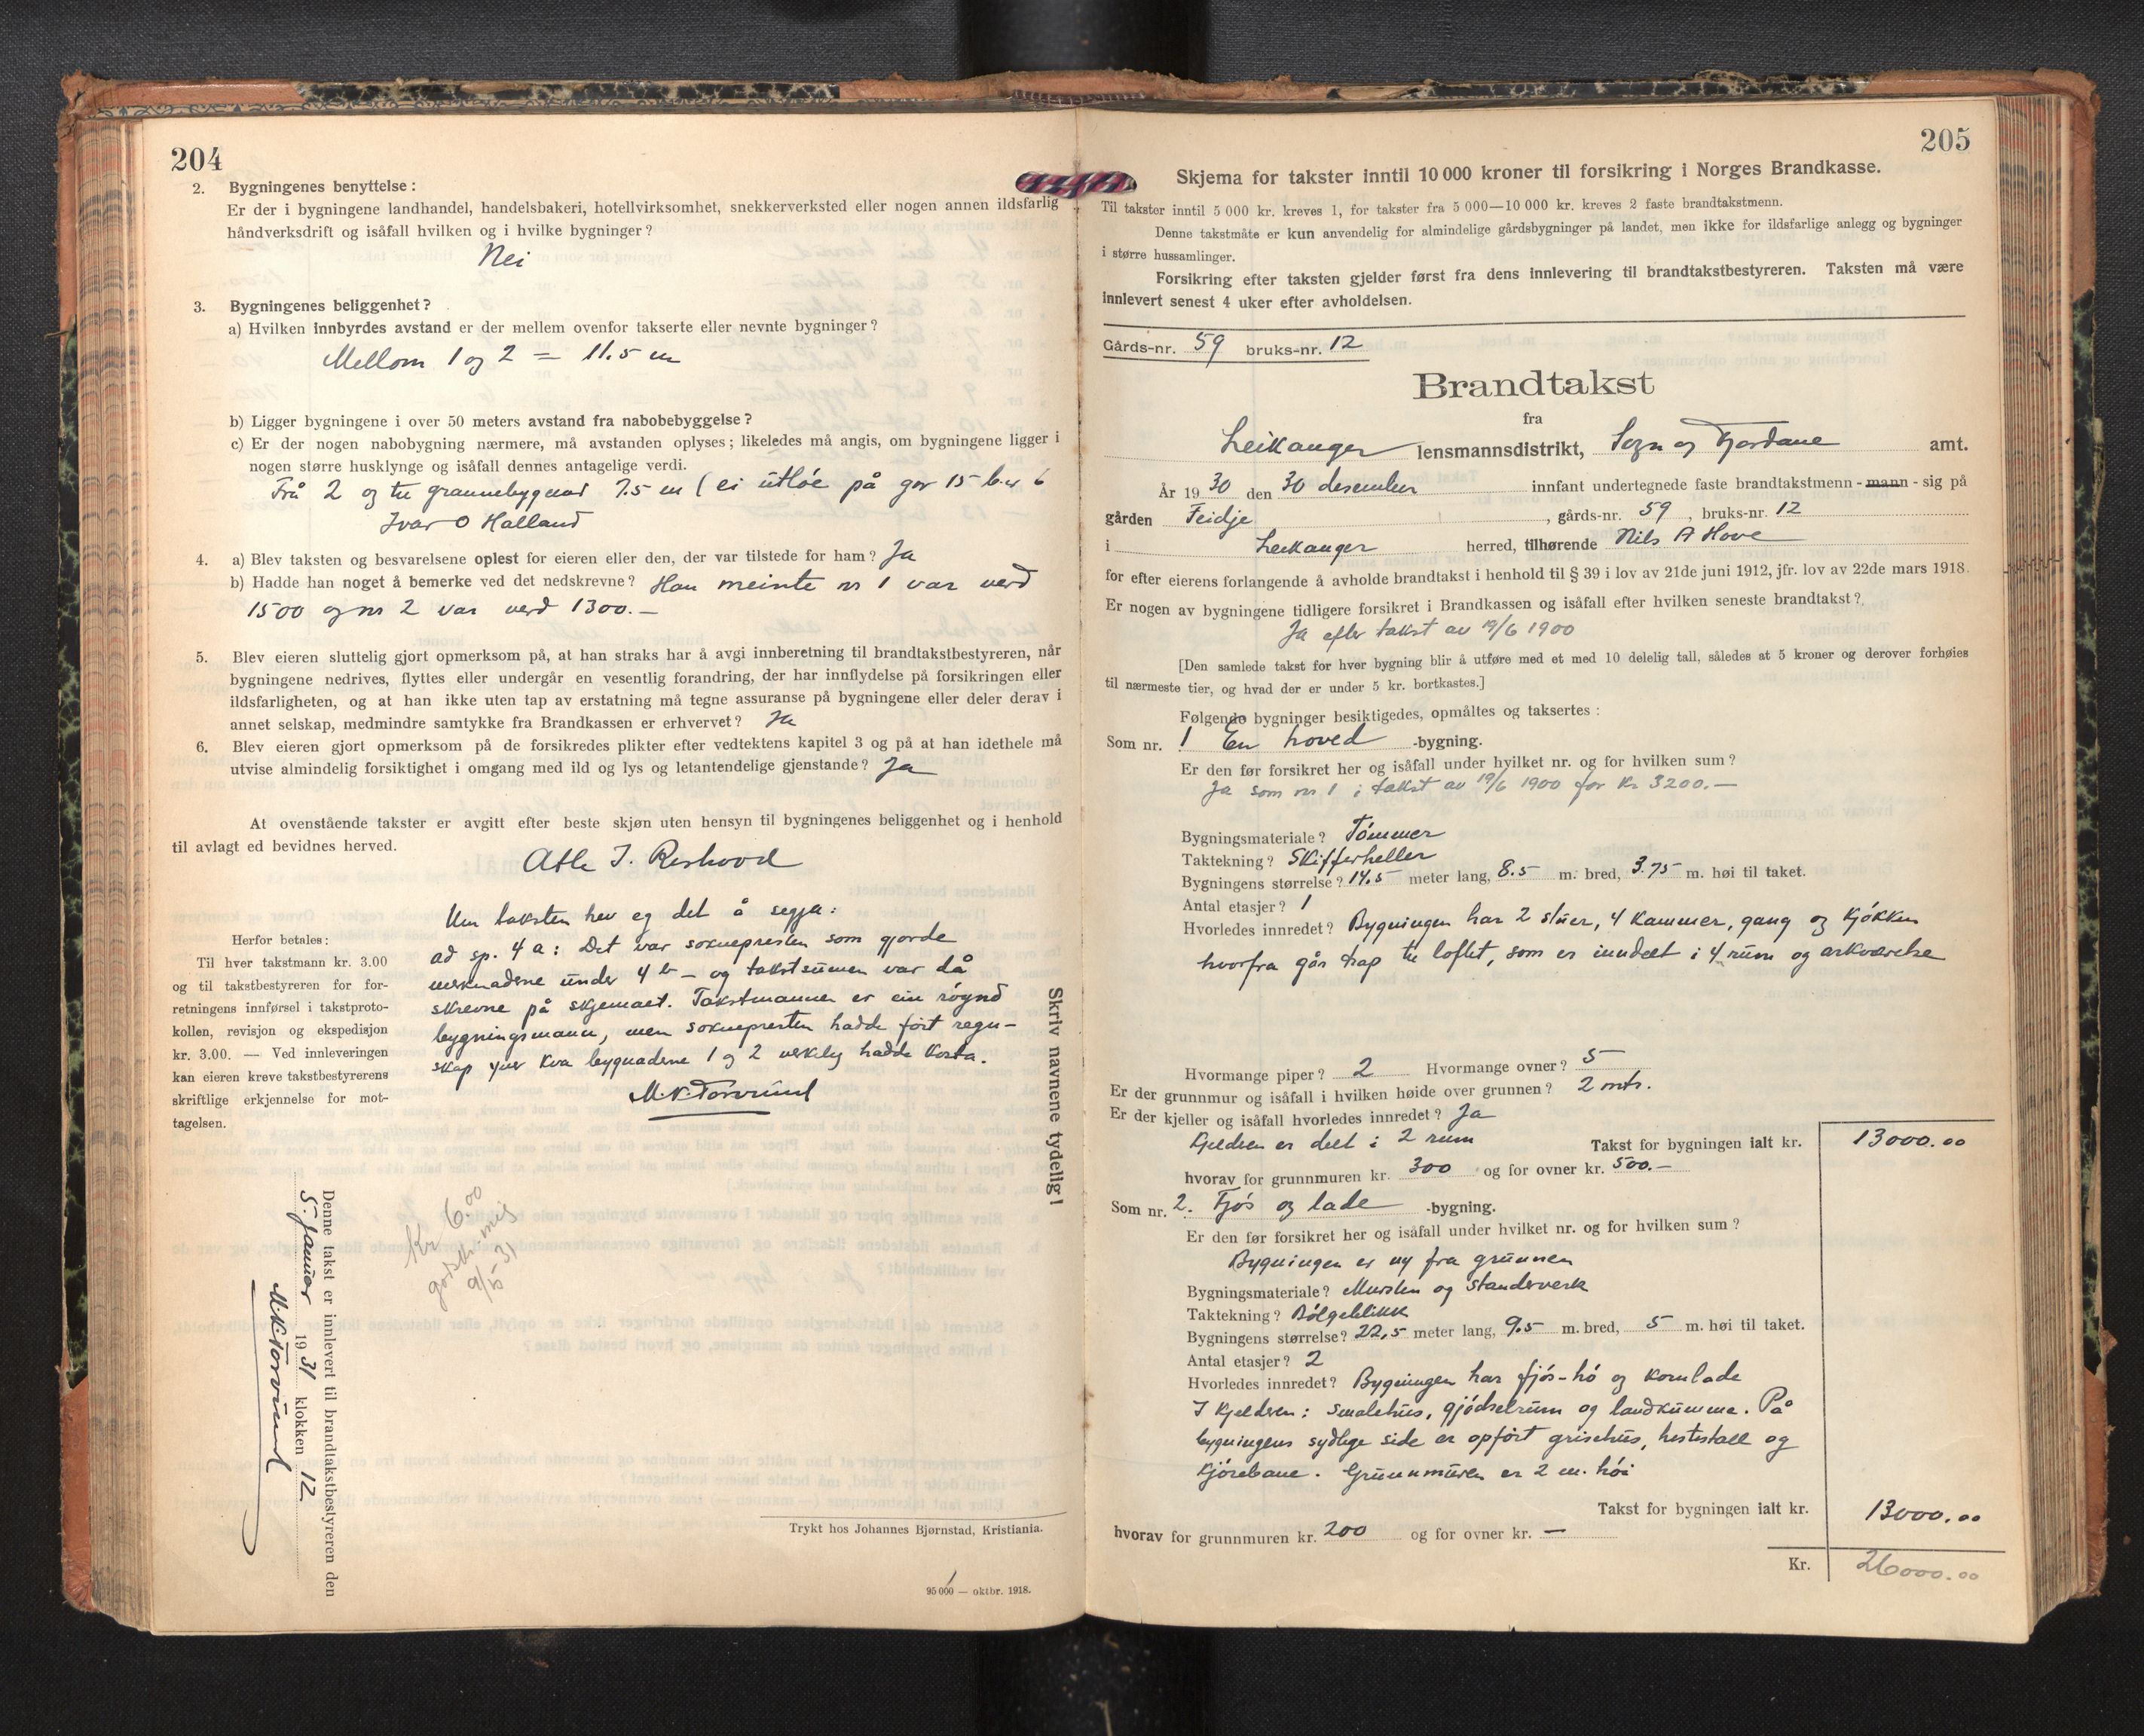 204
2. Bygningenes benyttelse:
Er der i bygningene landhandel, handelsbakeri, hotellvirksomhet, snekkerverksted eller nogen annen ildsfarlig
håndverksdrift og isåfall hvilken og i hvilke bygninger?
Nei
3. Bygningenes beliggenhet?
a) Hvilken innbyrdes avstand er der mellem ovenfor takserte eller nevnte bygninger?
Mellom 1 og 2 = 11.5 m
b) Ligger bygningene i over 50 meters avstand fra nabobebyggelse?
c) Er der nogen nabobygning nærmere, må avstanden oplyses; likeledes må angis, om bygningene ligger i
nogen større husklynge og isåfall dennes antagelige verdi.
Frå 2 og til grannebygnad 7.5 m (ei utløe på gnr 15 b.nr 6
Ivar O Halland
4. a) Blev taksten og besvarelsene oplest for eieren eller den, der var tilstede for ham? Ja
b) Hadde han noget å bemerke ved det nedskrevne? Han meinte nr 1 var verd
1500 og nr 2 var verd 1300.-
5. Blev eieren sluttelig gjort opmerksom på, at han straks har å avgi innberetning til brandtakstbestyreren, når
bygningene nedrives, flyttes eller undergår en vesentlig forandring, der har innflydelse på forsikringen eller
ildsfarligheten, og at han ikke uten tap av erstatning må tegne assuranse på bygningene eller deler derav i
annet selskap, medmindre samtykke fra Brandkassen er erhvervet? Ja
6. Blev eieren gjort opmerksom på de forsikredes plikter efter vedtektens kapitel 3 og på at han idethele må
utvise almindelig forsiktighet i omgang med ild og lys og letantendelige gjenstande? Ja
At ovenstående takster er avgitt efter beste skjøn uten hensyn til bygningenes beliggenhet og i henhold
til avlagt ed bevidnes herved.
Atle J.
Um taksten hev eg det å segja:
ad sp. 4 a: Det var soknepresten som gjorde
merknadene under 4 b - og takstsummen var då
skrevne på skjemaet. Takstmannen er ein røynd
bygningsmann, men soknepresten hadde ført regn-
skap yver kva bygnadene 1 og 2 verkeleg hadde kosta.
M. K. Torvund
Herfor betales:
Til hver takstmann kr. 3.00
og til takstbestyreren for for-
retningens innførsel i takstproto-
kollen, revisjon og ekspedisjon
kr. 3.00. — Ved innleveringen
kan eieren kreve takstbestyrerens
skriftlige erkjennelse for mot-
tagelsen.
Skriv navnene tydelig!
Kr 6.00
9/5 31
Denne takst er innlevert til brandtakstbestyreren den
5. januar 1931 klokken 12
M. K. Torvund
Trykt hos Johannes Bjørnstad, Kristiania.
95 000 — oktbr. 1918.
205
Skjema for takster inntil 10 000 kroner til forsikring i Norges Brandkasse.
Til takster inntil 5 000 kr. kreves 1, for takster fra 5 000—10 000 kr. kreves 2 faste brandtakstmenn.
Denne takstmåte er kun anvendelig for almindelige gårdsbygninger på landet, men ikke for ildsfarlige anlegg og bygninger
i større hussamlinger.
Forsikring efter taksten gjelder først fra dens innlevering til brandtakstbestyreren. Taksten må være
innlevert senest 4 uker efter avholdelsen.
Gårds-nr. 59 bruks-nr. 12
Brandtakst
fra
Leikanger lensmannsdistrikt, Sogn og Fjordane amt.
År 1930 den 30 desember innfant undertegnede faste brandtakstmenn - mann - sig på
gården Feidje, gårds-nr. 59, bruks-nr. 12
i Leikanger herred, tilhørende Nils A Hove
for efter eierens forlangende å avholde brandtakst i henhold til § 39 i lov av 21de juni 1912, jfr. lov av 22de mars 1918.
Er nogen av bygningene tidligere forsikret i Brandkassen og isåfall efter hvilken seneste brandtakst?
Ja efter takst av 19/6 1900
[Den samlede takst for hver bygning blir å utføre med et med 10 delelig tall, således at 5 kroner og derover forhøies
til nærmeste tier, og hvad der er under 5 kr. bortkastes.]
Følgende bygninger besiktigedes, opmåltes og taksertes:
Som nr. 1 En hoved -bygning.
Er den før forsikret her og isåfall under hvilket nr. og for hvilken sum?
Ja som nr 1 i takst av 19/6 1900 for kr 3200.-
Bygningsmateriale? Tømmer
Taktekning? Skifferheller
Bygningens størrelse? 14.5 meter lang, 8.5 m. bred, 3.75 m. høi til taket.
Antal etasjer? 1
Hvorledes innredet? Bygningen har 2 stuer, 4 kammer, gang og kjøkken
hvorfra går trap til loftet, som er inndelt i 4 rum og arkværelse
Hvormange piper? 2 Hvormange ovner? 5
Er der grunnmur og isåfall i hvilken høide over grunnen? 2 mtr.
Er der kjeller og isåfall hvorledes innredet? Ja
Kjelderen er delt i 2 rum Takst for bygningen ialt kr. 13000.00
hvorav for grunnmuren kr. 300 og for ovner kr. 500.-
Som nr. 2. Fjøs og lade -bygning.
Er den før forsikret her og isåfall under hvilket nr. og for hvilken sum?
Bygningen er ny fra grunnen
Bygningsmateriale? Mursten og standerverk
Taktekning? Bølgeblikk
Bygningens størrelse? 22,5 meter lang, 9.5 m. bred, 5 m. høi til taket.
Antal etasjer? 2
Hvorledes innredet? Bygningen har fjøs-hø og kornlade
I kjelderen: Smalehus, gjødselrum og landkumme. På
bygningens sydlige side er opført grisehus, hestestall og
kjørebane. Grunnmuren er 2 m. høi
Takst for bygningen ialt kr. 13000.00
hvorav for grunnmuren kr. 200 og for ovner kr. —
Kr. 26000.00